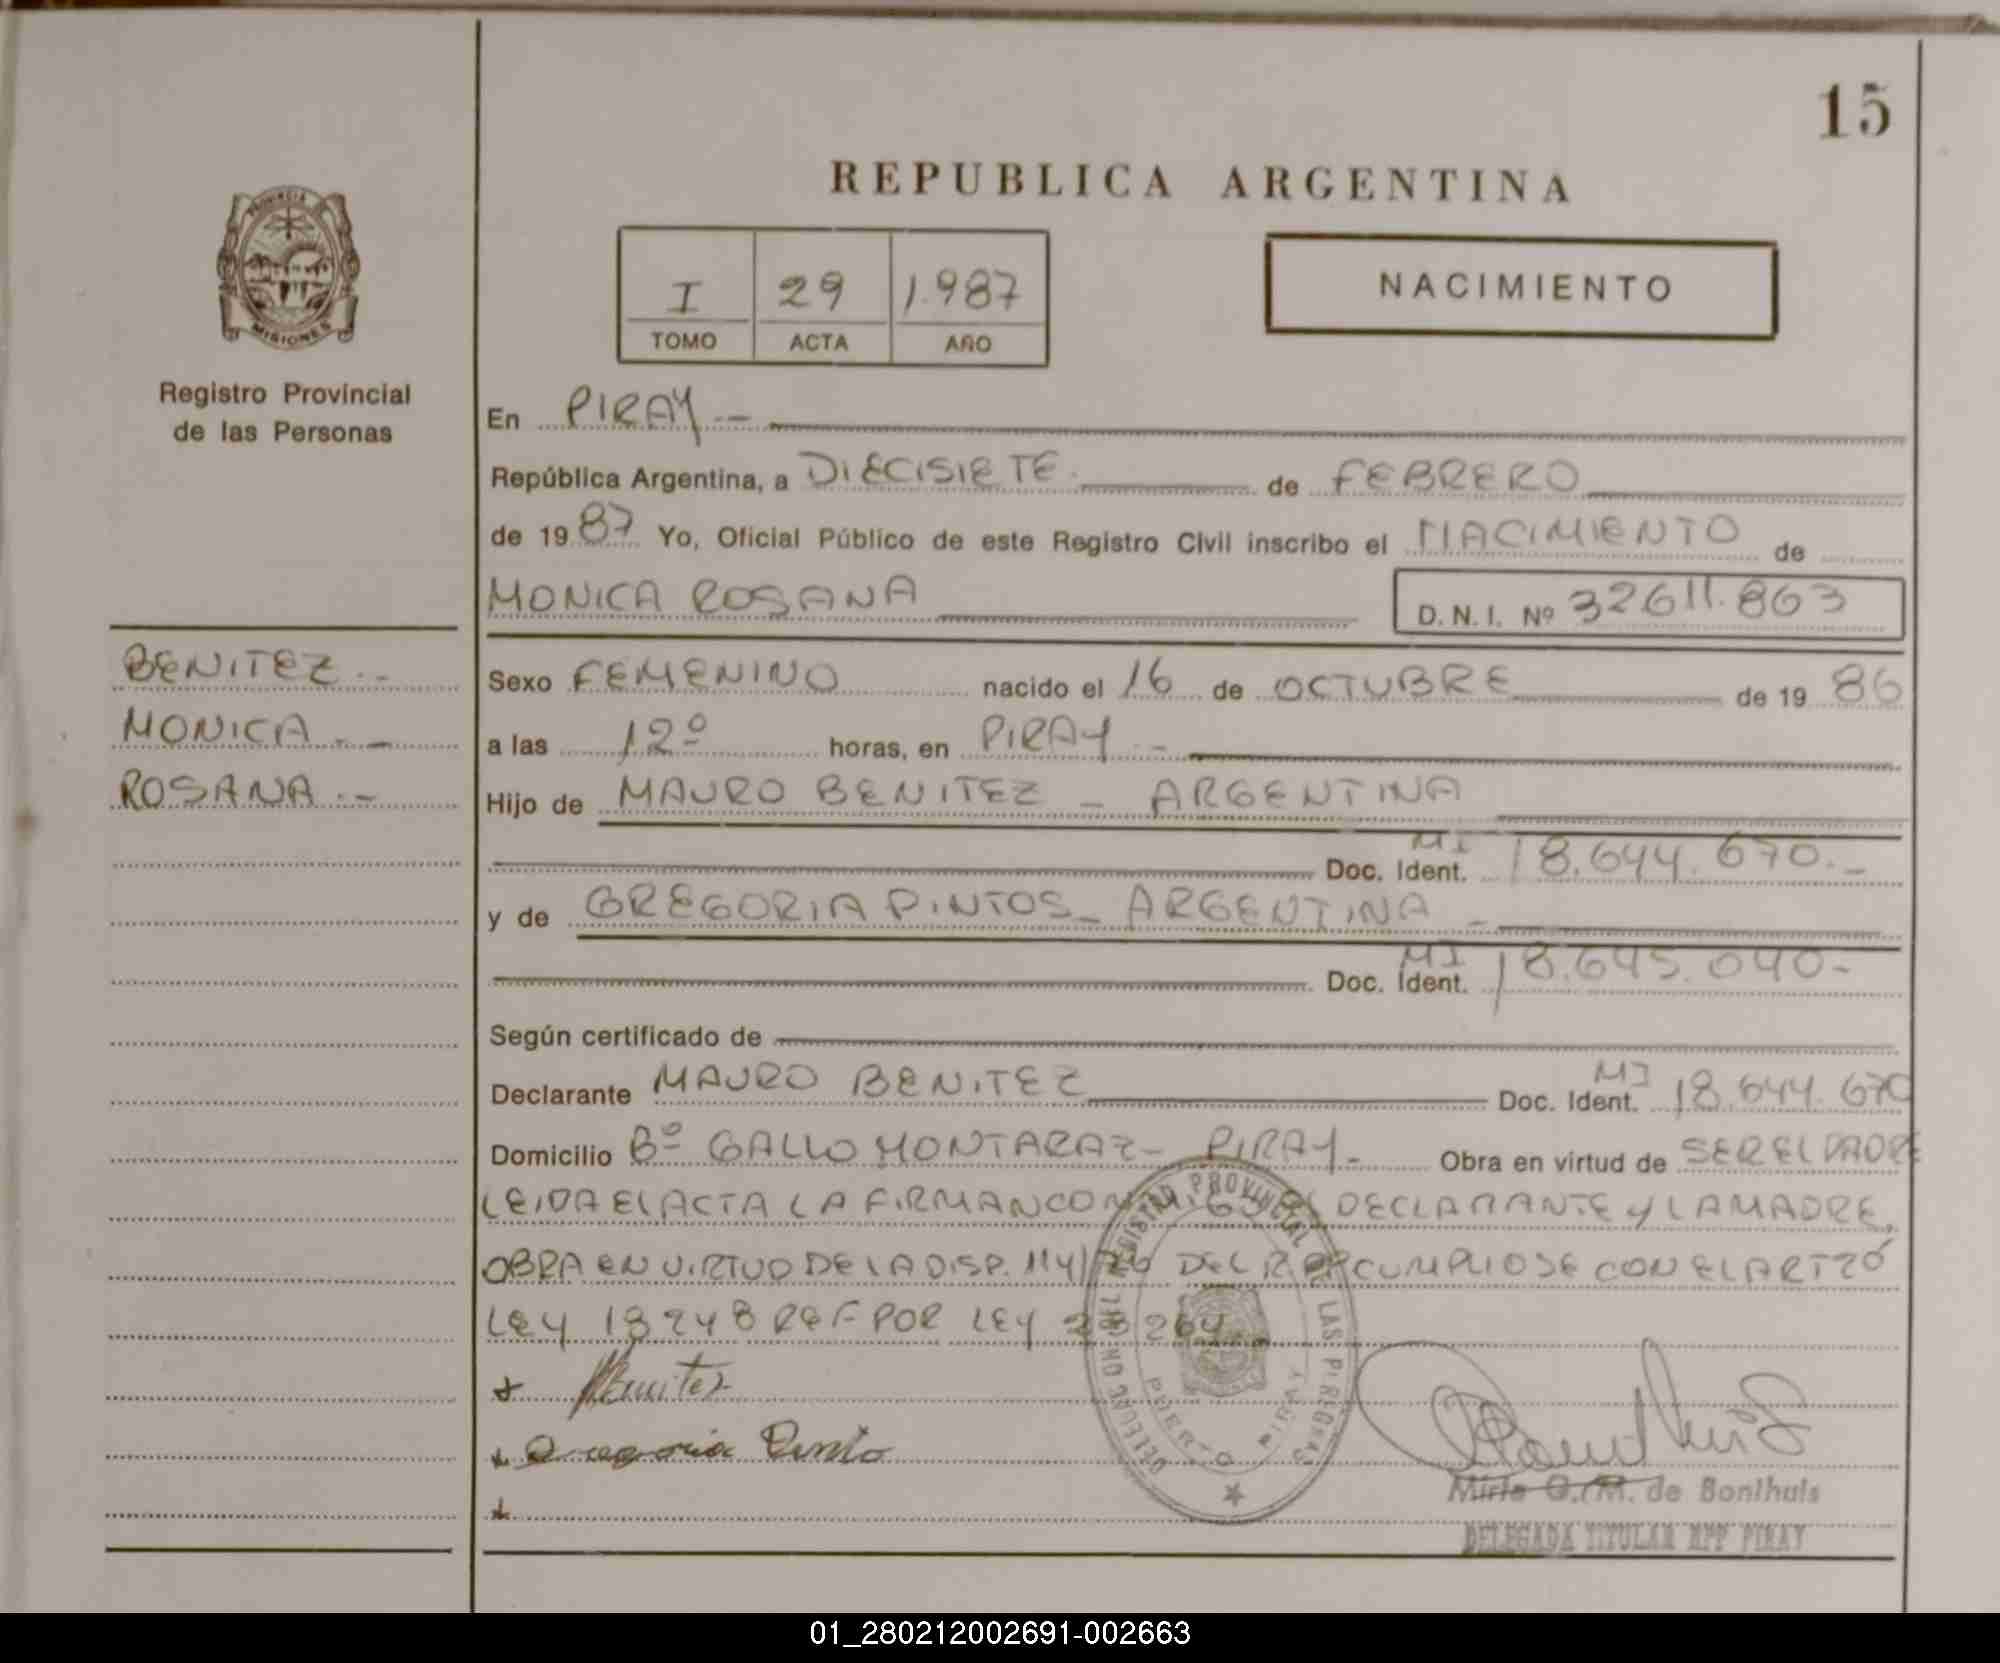 15
REPUBLICA ARGENTINA
PROVINCIA
MISIONES
Registro Provincial
de las Personas
I 29 1.987
TOMO ACTA AÑO
NACIMIENTO
En PIRAY.-
República Argentina, a DIECISIETE. de FEBRERO
de 19 87 Yo, Oficial Público de este Registro Civil inscribo el NACIMIENTO de
MONICA ROSANA D. N. I. Nº 32611.863
BENITEZ.-
MONICA.-
ROSANA.-
Sexo FEMENINO nacido el 16 de OCTUBRE de 19 86
a las 12º horas, en PIRAY.-
Hijo de MAURO BENITEZ - ARGENTINA
Doc. Ident. MI 18.644.670.-
y de GREGORIA PINTOS - ARGENTINA -
Doc. Ident. MI 18.645.040-
Según certificado de
Declarante MAURO BENITEZ Doc. Ident. MI 18.644.670
Domicilio Bº GALLO MONTARAZ - PIRAY- Obra en virtud de SER EL PADRE
LEIDA EL ACTA LA FIRMAN CON MIGO EL DECLARANTE Y LA MADRE,
OBRA EN VIRTUD DE LA DISP. 114/76 DEL RPP CUMPLIOSE CON EL ART 20
LEY 18248 REF POR LEY 23264.-
Benitez
Gregoria Pinto
DELEGACION DEL REGISTRO PROVINCIAL DE LAS PERSONAS
PUERTO PIRAY
Mirta G. M. de Bonlhuis
DELEGADA TITULAR RPP PIRAY
01_280212002691-002663